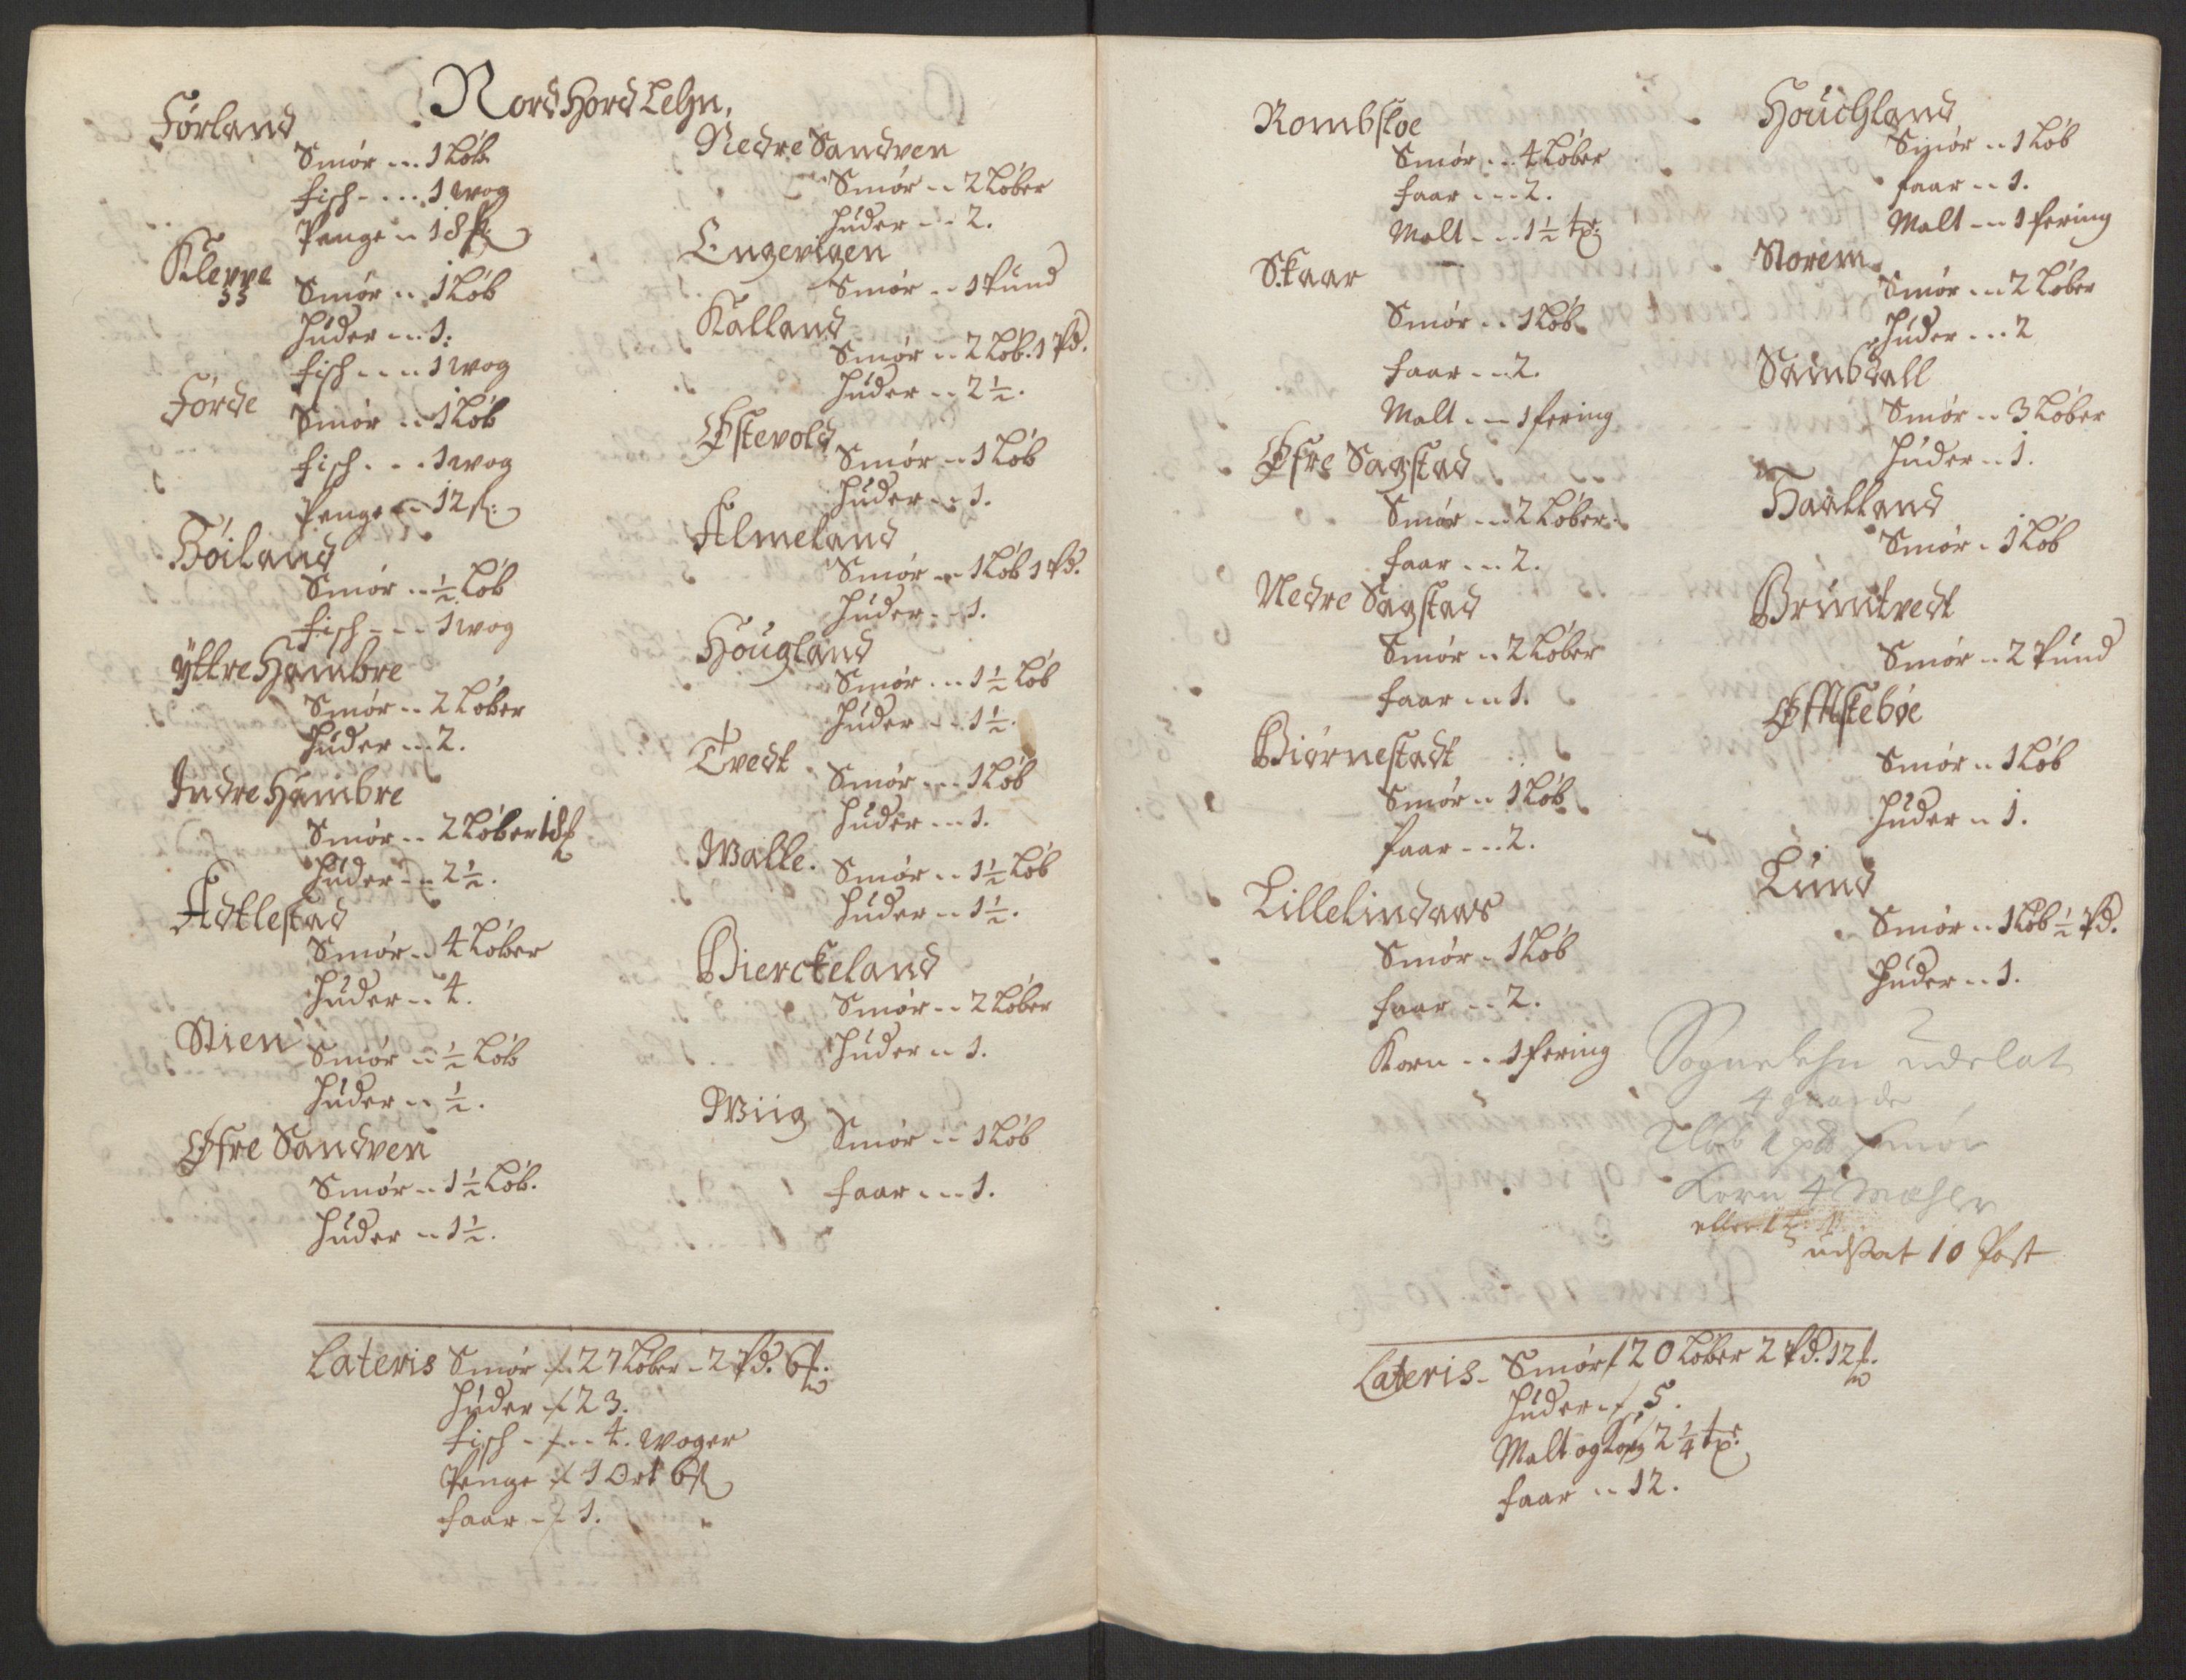 Nord Hord Lehn.
Førland
Smør - - - 1 Løb
fisch - - - - 1 wog
Penge - - 18 s:
Kleppe
Smør - - 1 Løb
Huder - - - 1:
fisch - - - - 1 wog
Førde
Smør - - 1 Løb
fisch - - - 1 wog
Penge - - 12 s:
Høiland
Smør - - ½ Løb
fisch - - - 1 wog
Yttre Hambre
Smør - - 2 Løber
Huder - - - 2.
Indre Hambre
Smør - - 2 Løber 18 s
Huder - - - 2½.
Adtlestad
Smør - - 4 Løber
Huder - - 4.
Stien
Smør - - ½ Løb
Huder - - ½.
Øfre Sandven
Smør - - 1½ Løb.
Huder - - 1½.
Nedre Sandven
Smør - - 2 Løber
Huder - - - 2.
Engevigen
Smør - - 1 Pund
Kalland
Smør - - 2 Løb. 1 Pd.
Huder - - 2½.
Østevold
Smør - - 1 Løb
Huder - - - 1.
Almeland
Smør - - 1 Løb 1 Pd.
Huder - - - 1.
Hougland
Smør - - - 1½ Løb
Huder - - - 1½.
Tvedt
Smør - - - 1 Løb
Huder - - - 1.
Walle.
Smør - - 1½ Løb
Huder - - 1½.
Bierckeland
Smør - - 2 Løber
Huder - - 1.
Wiig
Smør - - 1 Løb
faar - - - 1.
Lateris Smør - 27 Løber - 2 Pd. 6 s:
Huder - 23.
fisch - - - - 4. woger
Penge - 1 Ort 6 s
faar - - 1.
Rombsloe
Smør - - - 4 Løber
faar - - - 2.
Malt - - - 1½ tr:
Skaar
Smør - - 1 Løb
faar - - - 2.
Malt - - - 1 fering
Øfre Sagstad
Smør - - - 2 Løber
faar - - - 2.
Nedre Sagstad
Smør - - 2 Løber
faar - - - 1.
Biørnestadt
Smør - - 1 Løb
faar - - - 2.
Lillelindaas
Smør - 1 Løb
faar - - - 2.
Korn - - 1 fering
Houchland
Smør - - 1 Løb
faar - - 1.
Malt - - - 1 fering
Norem
Smør - - - 2 Løber
Huder - - - 2
Sambdall
Smør - - 3 Løber
Huder - - 1.
Haalland
Smør - 1 Løb
Bruntvedt
Smør - - 2 Pund
Smør - - 1 Løb
Huder - - 1.
Lund
Smør - - 1 Løb ½ Pd.
Huder - - 1.
Sognelehn udelat
4 gaarde
Smør
Korn 4 Mæhler
eller
udsat 10 Post
Lateris - Smør 20 Løber 2 Pd. 12 s:
Huder - 5.
Malt og Korn 2¼ tr:
faar - - 12.